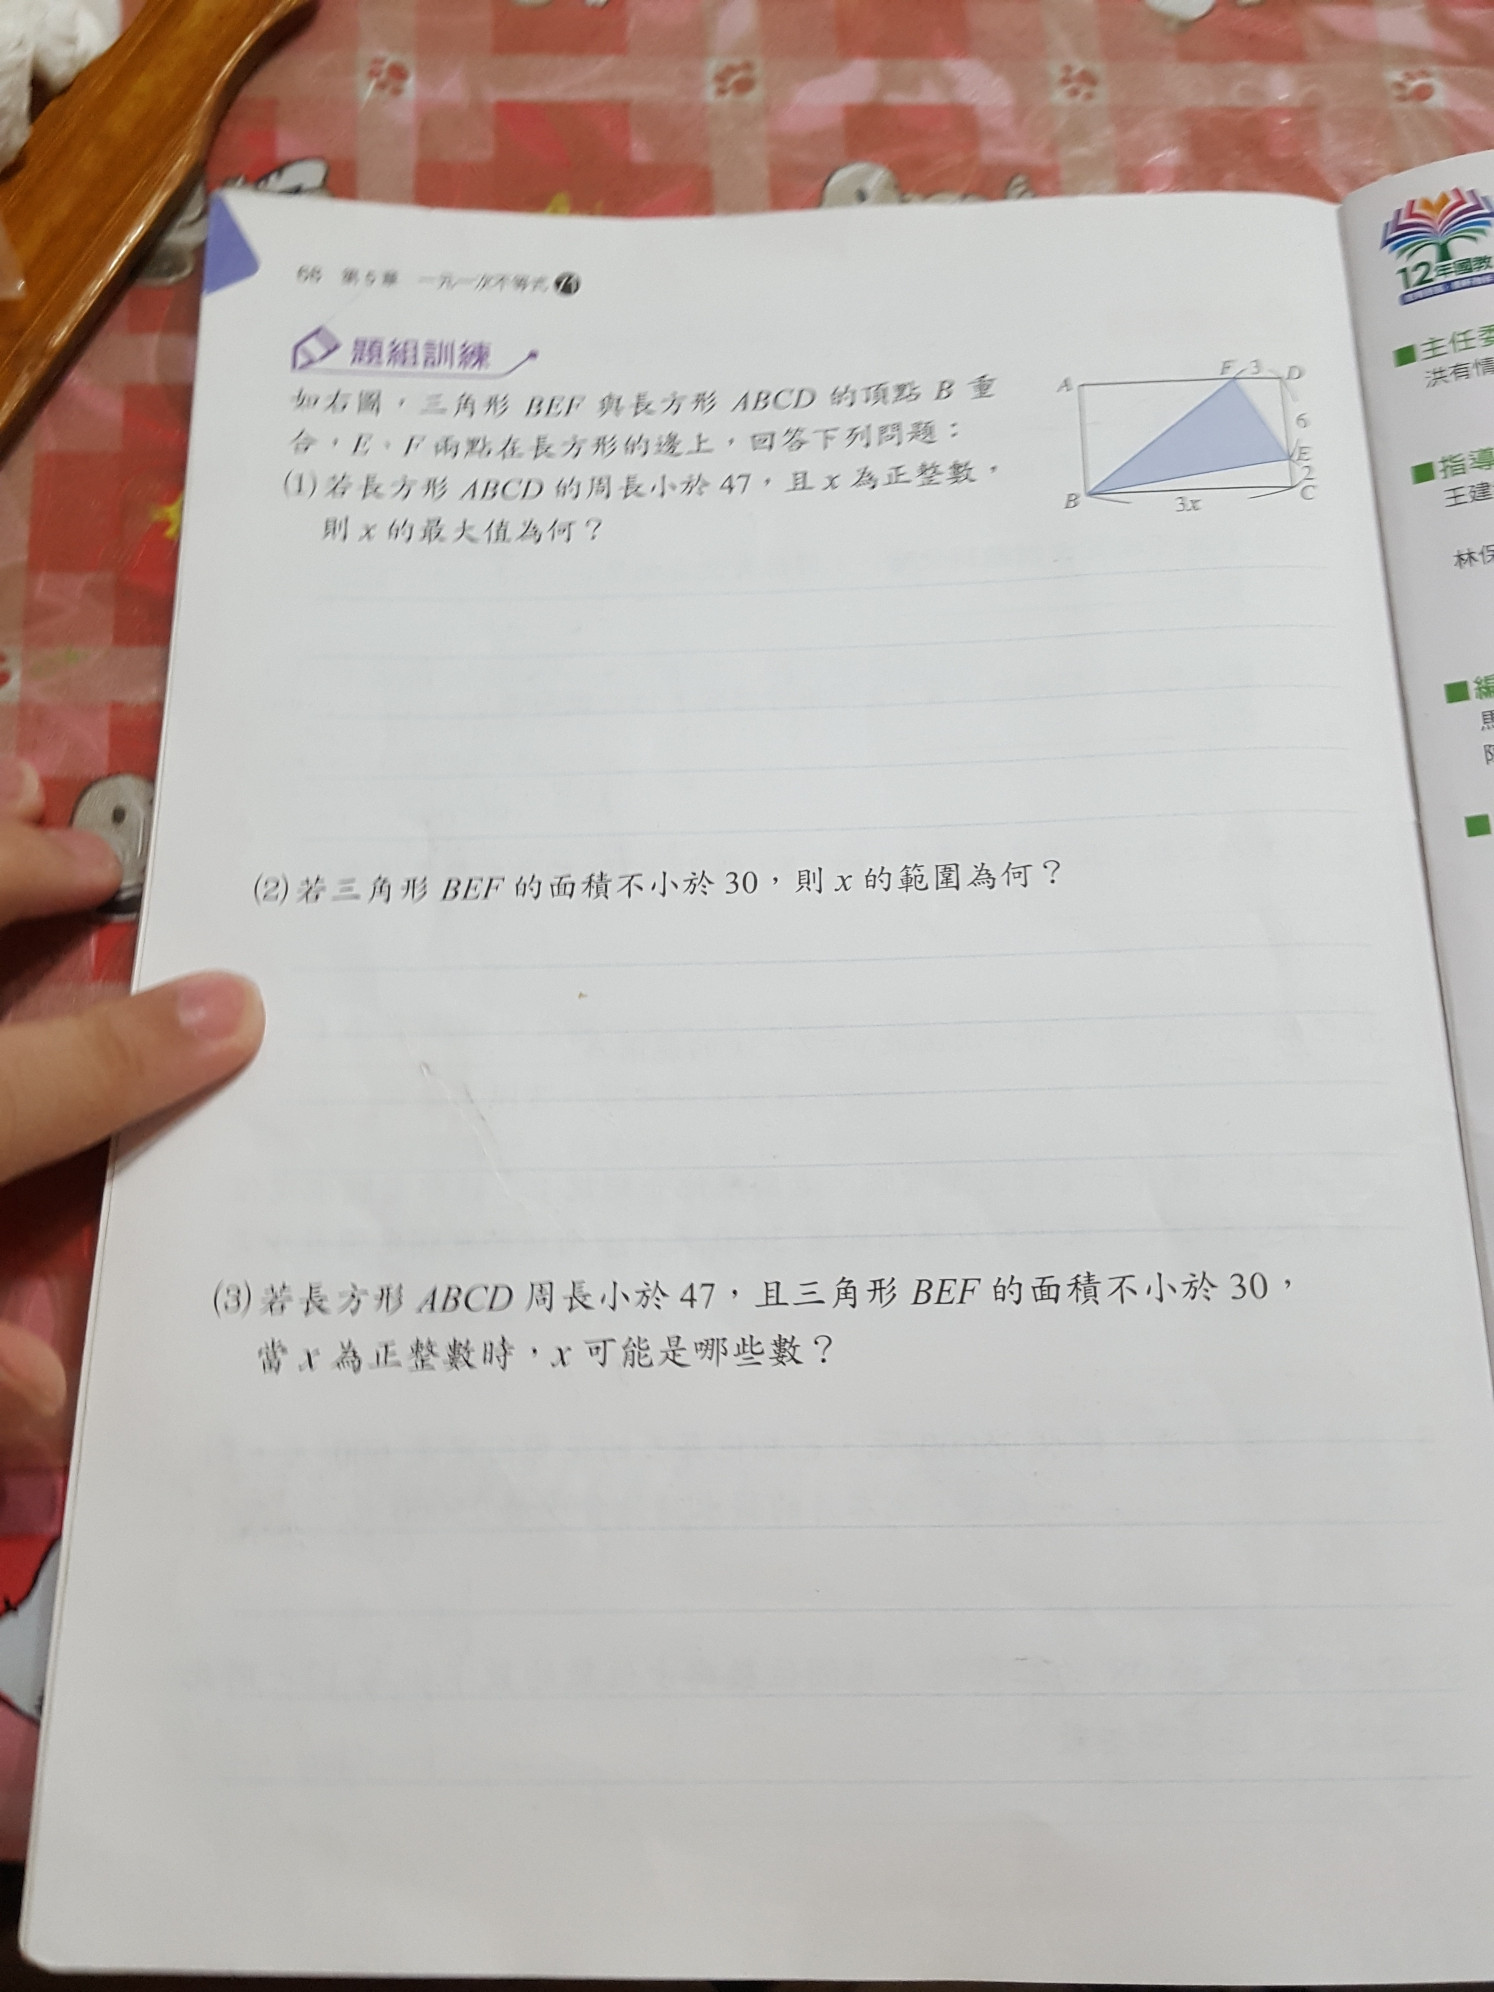 68 第5章 一元一次不等式 71
題組訓練
如右圖，三角形 BEF 與長方形 ABCD 的頂點 B 重
合，E、F 兩點在長方形的邊上，回答下列問題：
(1) 若長方形 ABCD 的周長小於 47，且 x 為正整數，
則 x 的最大值為何？
A F 3 D
6
E
2
B 3x C
(2) 若三角形 BEF 的面積不小於 30，則 x 的範圍為何？
(3) 若長方形 ABCD 周長小於 47，且三角形 BEF 的面積不小於 30，
當 x 為正整數時，x 可能是哪些數？
12年國教
■主任委
洪有情
■指導
王建
林保
■編